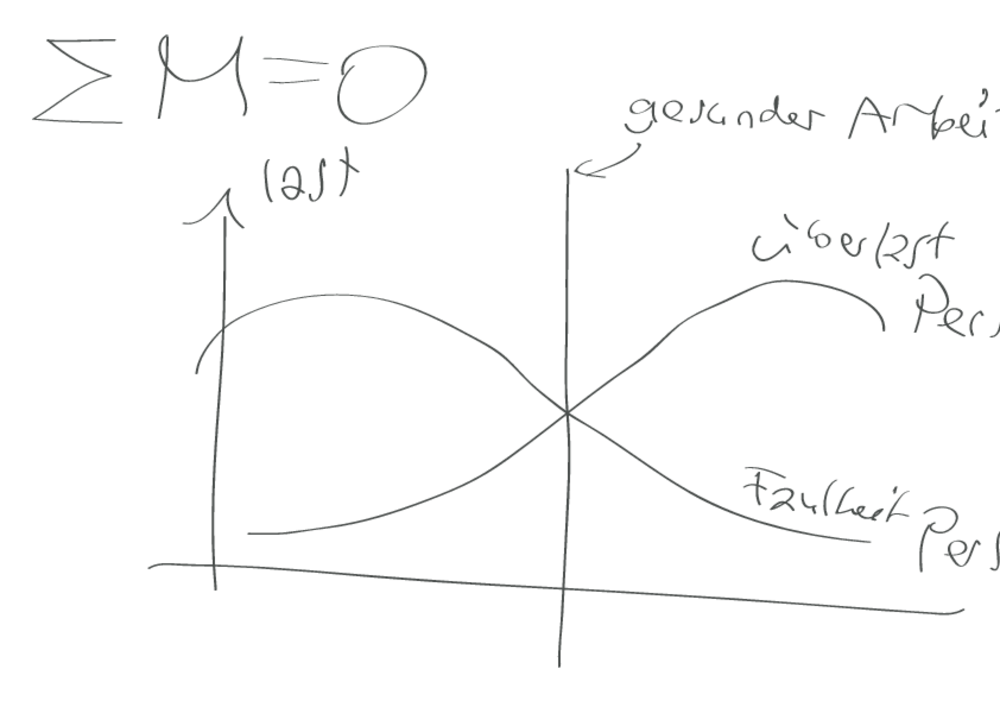 ΣM=0
gesunder Arbeit
last
überlast
Pers
Faulheit
Pers